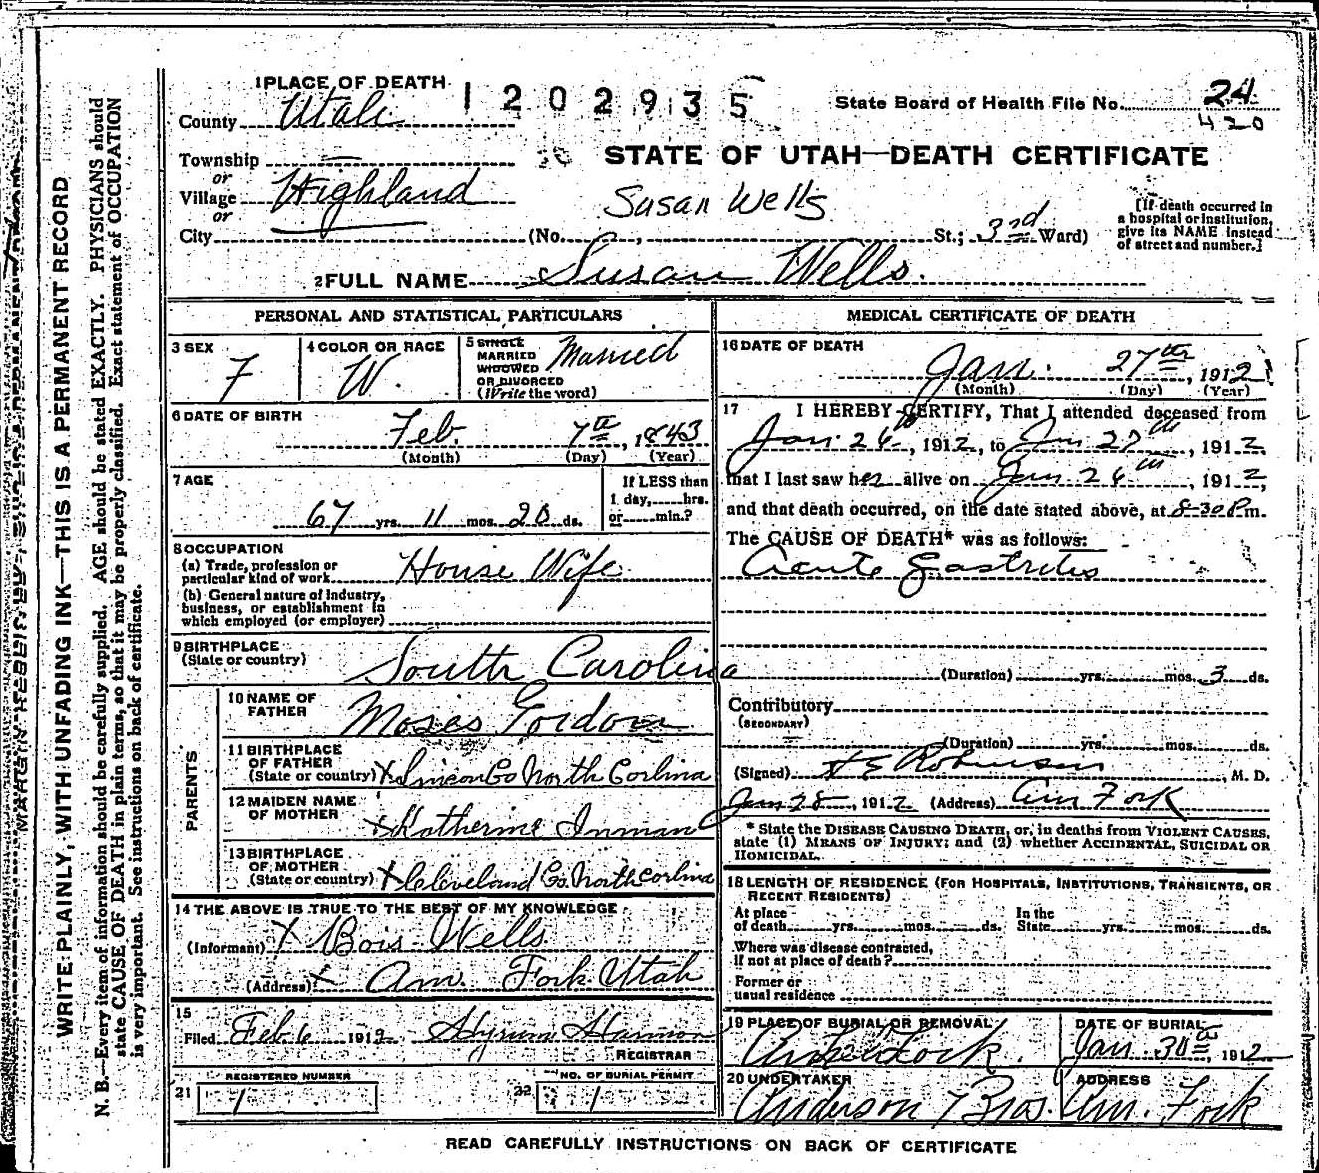 1 PLACE OF DEATH
1202935
State Board of Health File No. 24
420
County Utah
STATE OF UTAH—DEATH CERTIFICATE
Township —
or
Village Highland
or
City (No. , St.; 3rd Ward)
Susan Wells
[If death occurred in
a hospital or institution,
give its NAME instead
of street and number.]
2 FULL NAME Susan Wells.
PERSONAL AND STATISTICAL PARTICULARS
3 SEX F
4 COLOR OR RACE W.
5 SINGLE
MARRIED
WIDOWED
OR DIVORCED
(Write the word) Married
6 DATE OF BIRTH
Feb. 7th, 1843
(Month) (Day) (Year)
7 AGE
67 yrs. 11 mos. 20 ds.
If LESS than
1 day, hrs.
or min.?
8 OCCUPATION
(a) Trade, profession or
particular kind of work House Wife
(b) General nature of industry,
business, or establishment in
which employed (or employer)
9 BIRTHPLACE
(State or country) South Carolina
PARENTS
10 NAME OF
FATHER Moses Gordon
11 BIRTHPLACE
OF FATHER
(State or country) X Lincon Co North Corlina
12 MAIDEN NAME
OF MOTHER X Katherine Inman
13 BIRTHPLACE
OF MOTHER
(State or country) X Cleveland Co. North Corlina
14 THE ABOVE IS TRUE TO THE BEST OF MY KNOWLEDGE
(Informant) X Bois Wells
(Address) X Am. Fork Utah
15
Filed Feb 6 1912
REGISTRAR
21 REGISTERED NUMBER
1
22 NO. OF BURIAL PERMIT
1
MEDICAL CERTIFICATE OF DEATH
16 DATE OF DEATH
Jan. 27th, 1912
(Month) (Day) (Year)
17 I HEREBY CERTIFY, That I attended deceased from
Jan. 26th, 1912, to Jan 27th, 1912,
that I last saw her alive on Jan 26th, 1912,
and that death occurred, on the date stated above, at 8-30 P m.
The CAUSE OF DEATH* was as follows:
Acute Gastritis
(Duration) yrs. mos. 3 ds.
Contributory
(SECONDARY)
(Duration) yrs. mos. ds.
(Signed) Robinson, M. D.
Jan 28, 1912 (Address) Am Fork
* State the DISEASE CAUSING DEATH, or, in deaths from VIOLENT CAUSES,
state (1) MEANS OF INJURY; and (2) whether ACCIDENTAL, SUICIDAL OR
HOMICIDAL.
18 LENGTH OF RESIDENCE (FOR HOSPITALS, INSTITUTIONS, TRANSIENTS, OR
RECENT RESIDENTS)
At place
of death yrs. mos. ds.
In the
State yrs. mos. ds.
Where was disease contracted,
if not at place of death?
Former or
usual residence
19 PLACE OF BURIAL OR REMOVAL
DATE OF BURIAL
Jan 30th, 1912
20 UNDERTAKER
Anderson & Bros.
ADDRESS
Am. Fork
READ CAREFULLY INSTRUCTIONS ON BACK OF CERTIFICATE
WRITE PLAINLY, WITH UNFADING INK—THIS IS A PERMANENT RECORD
N. B.—Every item of information should be carefully supplied. AGE should be stated EXACTLY. PHYSICIANS should
state CAUSE OF DEATH in plain terms, so that it may be properly classified. Exact statement of OCCUPATION
is very important. See instructions on back of certificate.